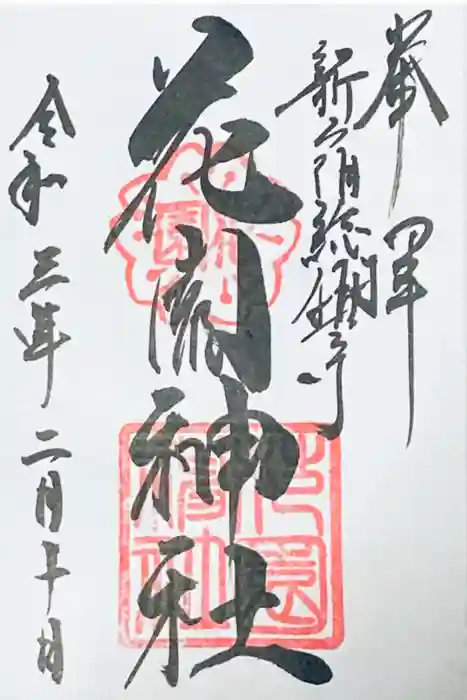 奉拝
新宿総鎮守
花園神社
花園神社
令和三年二月十日